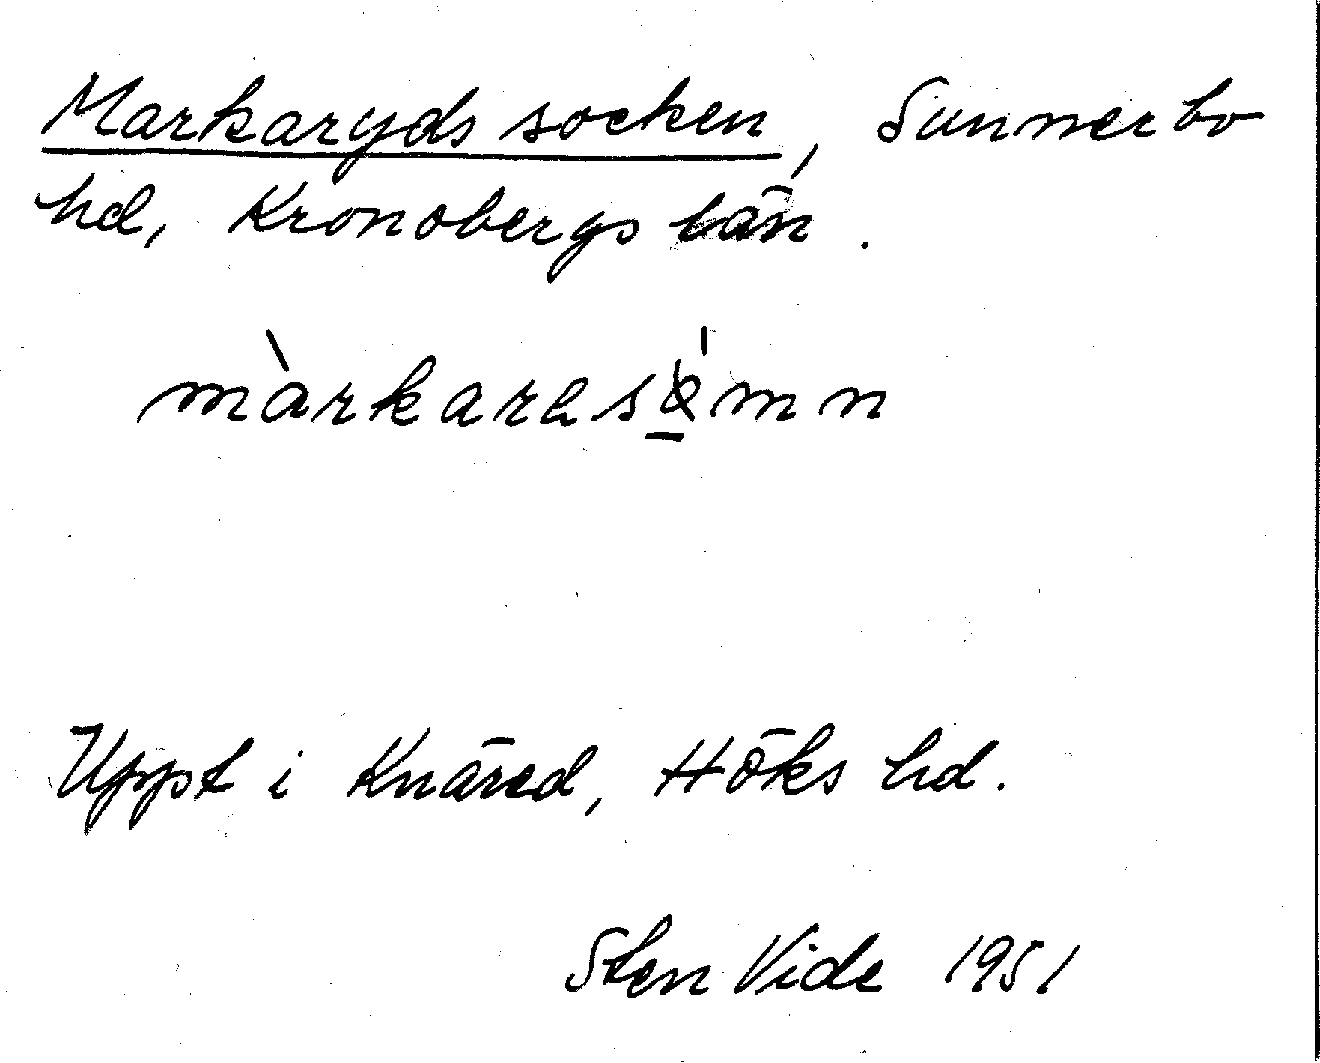 Markaryds socken, Sunnerbo
hd, Kronobergs län.
Uppt i Knäred, Höks hd.
Sten Vide 1951